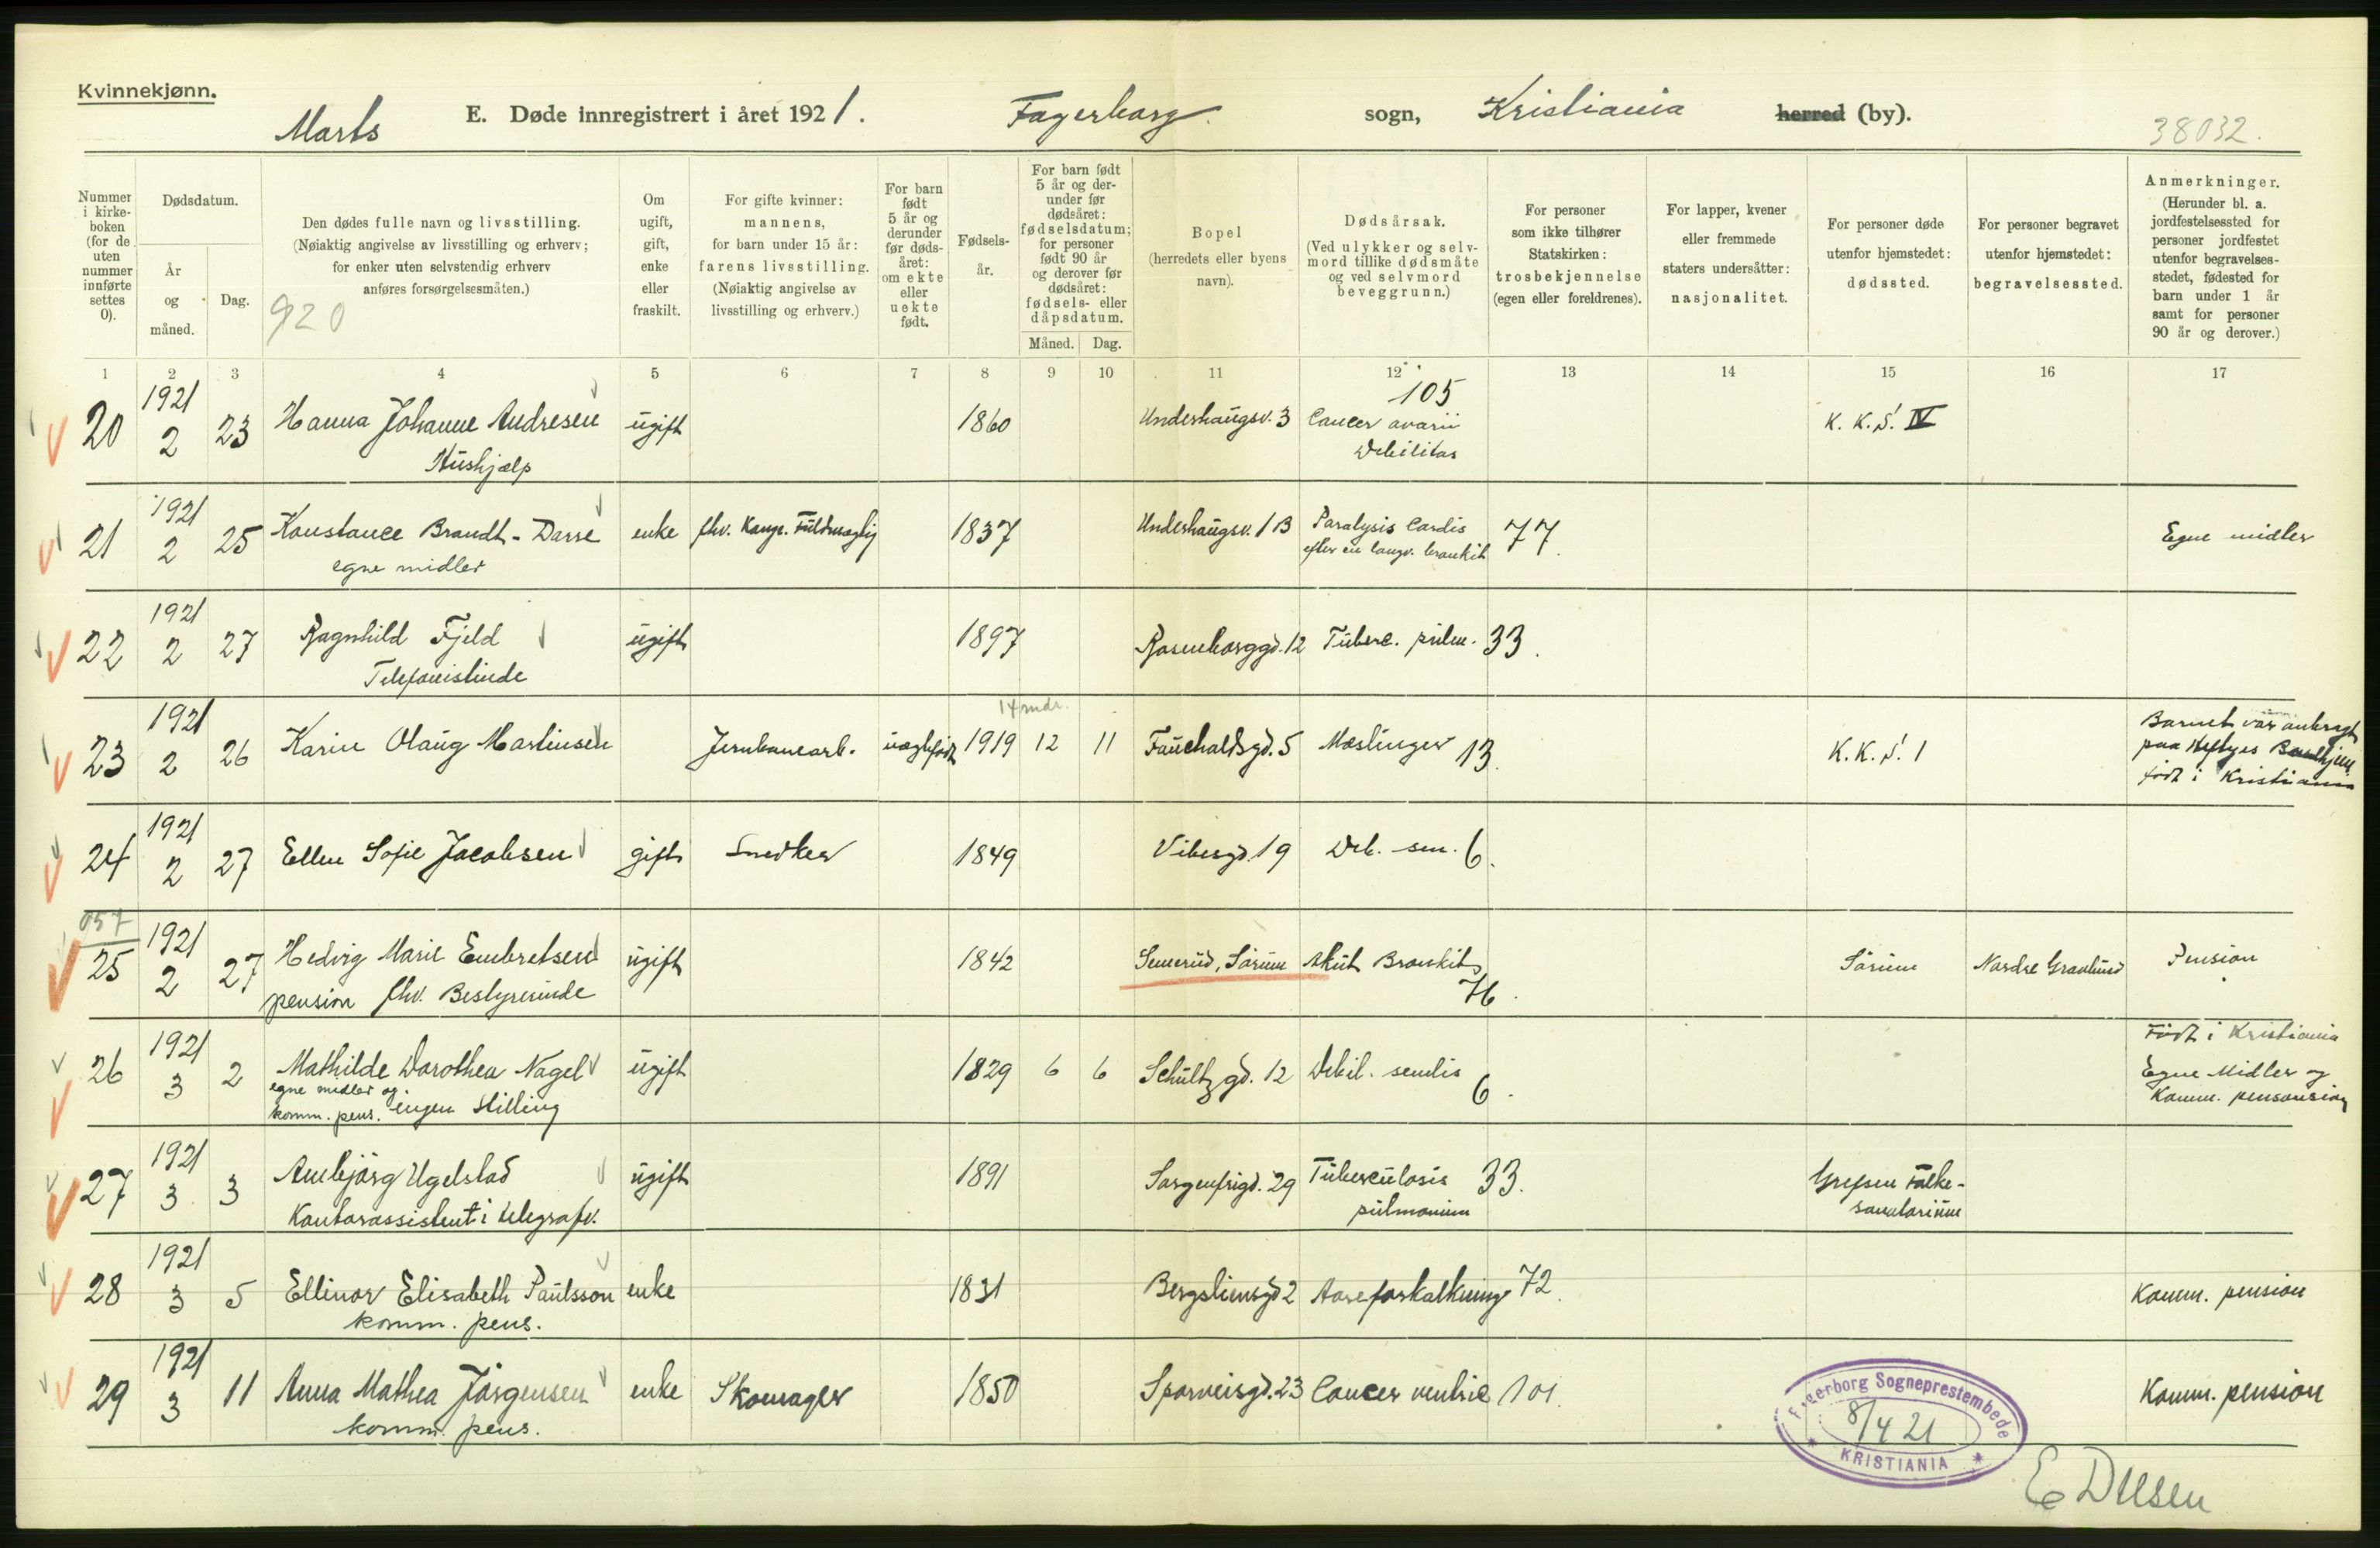 Kvinnekjønn.
Marts
E. Døde innregistrert i året 1921.
Fagerborg
sogn,
Kristiania
herred (by).
38032.
Nummer i kirke-boken (for de uten nummer innførte settes 0).
Dødsdatum.
År og måned.
Dag.
Den dødes fulle navn og livsstilling.
(Nøiaktig angivelse av livsstilling og erhverv;
for enker uten selvstendig erhverv
anføres forsørgelsesmåten.)
920
Om ugift, gift, enke eller fraskilt.
For gifte kvinner:
mannens,
for barn under 15 år:
farens livsstilling.
(Nøiaktig angivelse av
livsstilling og erhverv.)
For barn født 5 år og derunder før døds-året: om ekte eller uekte født.
Fødsels-år.
For barn født 5 år og der-under før dødsåret: fødselsdatum; for personer født 90 år og derover før dødsåret: fødsels- eller dåpsdatum.
Måned.
Dag.
Bopel
(herredets eller byens
navn).
Dødsårsak.
(Ved ulykker og selv-
mord tillike dødsmåte
og ved selvmord
beveggrunn.)
For personer
som ikke tilhører
Statskirken:
trosbekjennelse
(egen eller foreldrenes).
For lapper, kvener
eller fremmede
staters undersåtter:
nasjonalitet.
For personer døde
utenfor hjemstedet:
dødssted.
For personer begravet
utenfor hjemstedet:
begravelsessted.
Anmerkninger.
(Herunder bl. a.
jordfestelsessted for
personer jordfestet
utenfor begravelses-
stedet, fødested for
barn under 1 år
samt for personer
90 år og derover.)
1 2 3 4 5 6 7 8 9 10 11 12 13 14 15 16 17
20 1921 2 23 Hanna Johanne Andresen ugift 1860 Underhaugsv. 3 105 Cancer ovarii K. K. S. IV
Hushjælp Debilitas
21 1921 2 25 Konstance Brandt-Darre enke fhv. Fuldmægtig 1837 Underhaugsv. 1B Paralysis Cordis 77. Egne midler
egne midler efter en langv. bronkit
22 1921 2 27 Ragnhild Fjeld ugift 1897 Rosenborggd. 12 Tuberc. pulm. 33.
Telefonistinde
14 mdr.
23 1921 2 26 Karin Olaug Martinsen Jernbanearb. uægtefødt 1919 12 11 Fauchaldsgd. 5 Mæslinger 13. K. K. S. 1 Barnet var anbragt
paa Heftyes
født i Kristiania
24 1921 2 27 Ellen Sofie Jacobsen gift Snedker 1849 Vibesgd. 19 Deb. sen. 6.
057
25 1921 2 27 Hedvig Marie Embretsen ugift 1842 Sørum Akut Bronkit 76. Sørum Nordre Gravlund Pension
pension fhv. Bestyrerinde
26 1921 3 2 Mathilde Dorothea Nagel ugift 1829 6 6 Schultzgd. 12 Debil. senilis 6. Født i Kristiania
egne midler og
komm. pens. ingen Stilling
Egne Midler og
Komm.
27 1921 3 3 Ambjørg Ugelstad ugift 1891 Sorgenfrigd. 29 Tuberculosis 33. Grefsen Folke-
Kontorassistent i telegrafv. pulmonum sanatorium
28 1921 3 5 Ellinor Elisabeth Paulsson enke 1831 Bergsliensgd 2 Aareforkalkning 72. Komm. pension
komm. pens.
29 1921 3 11 Anna Mathea Jørgensen enke Skomager 1850 Sporveisgd. 23 Cancer ventric 101. Komm. pension
komm. pens.
Fagerborg Sogneprestembede
8/4 21
KRISTIANIA